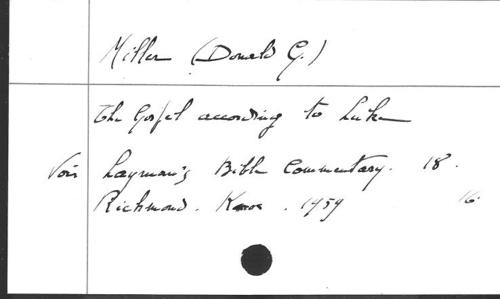 Miller (Donald G.)
The Gospel according to Luke
Voir Layman's Bible Commentary. 18.
Richmond. Knox. 1959 16.